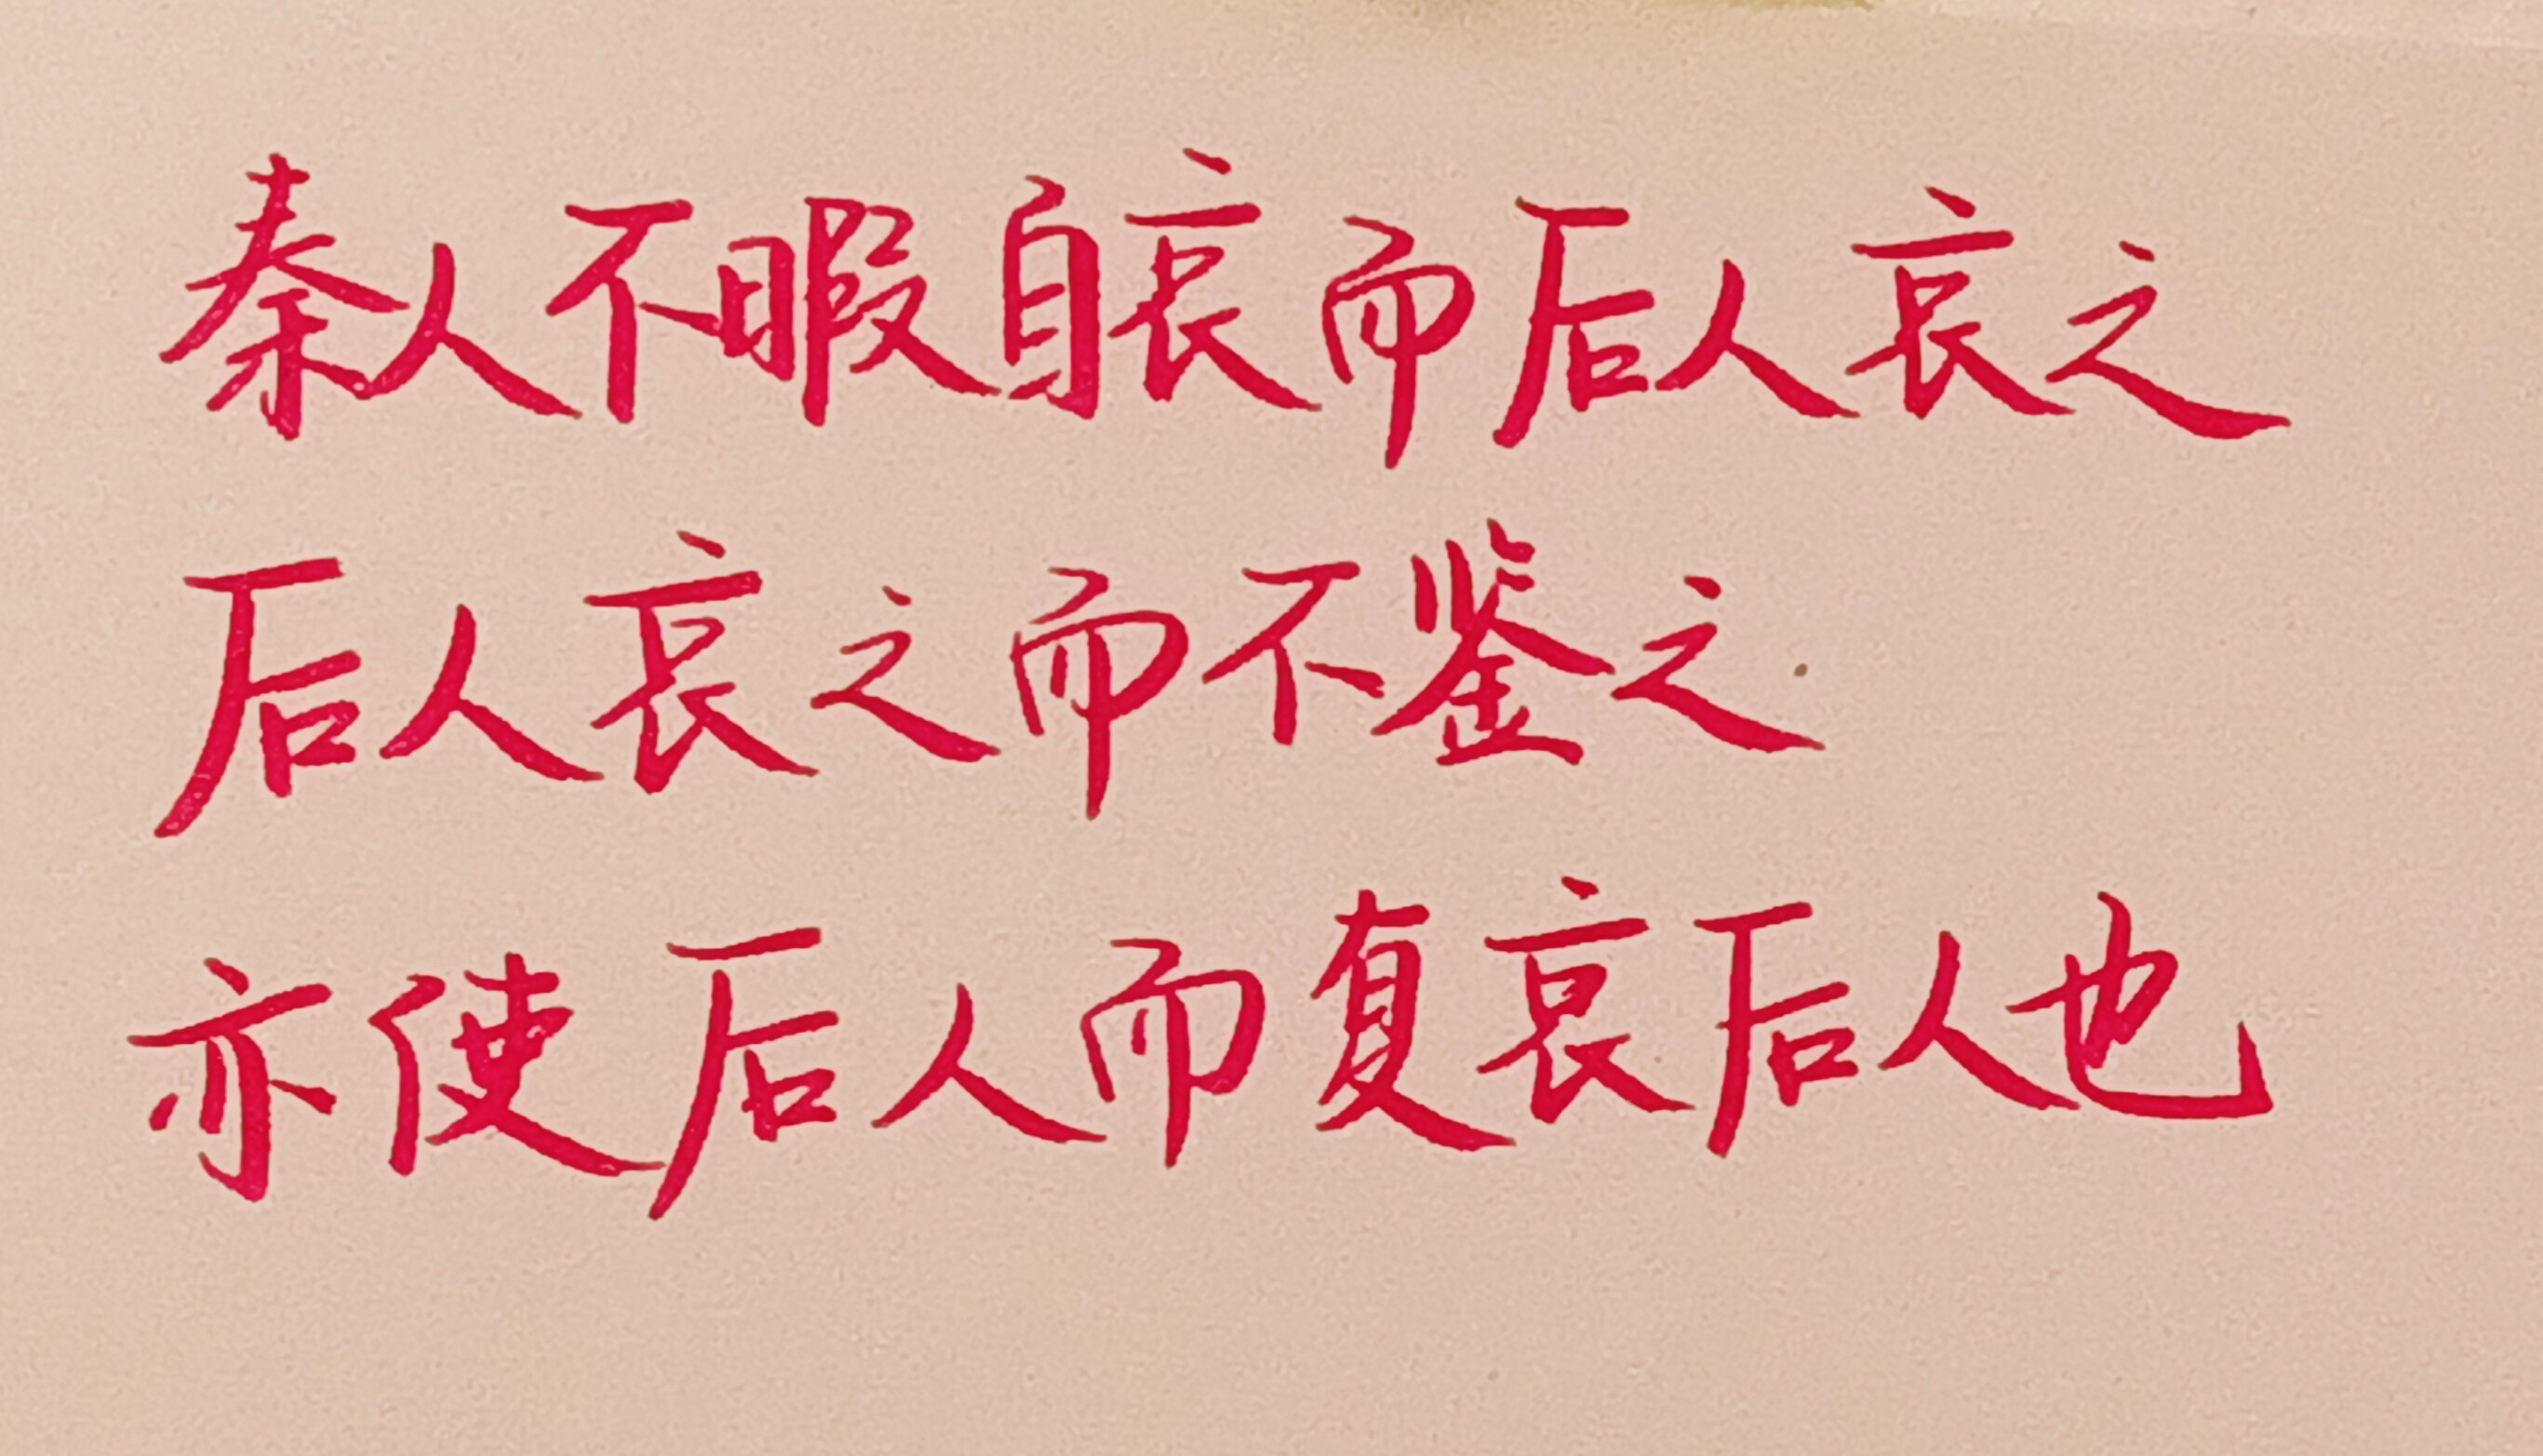 秦人不暇自哀而后人哀之
后人哀之而不鉴之
亦使后人而复哀后人也